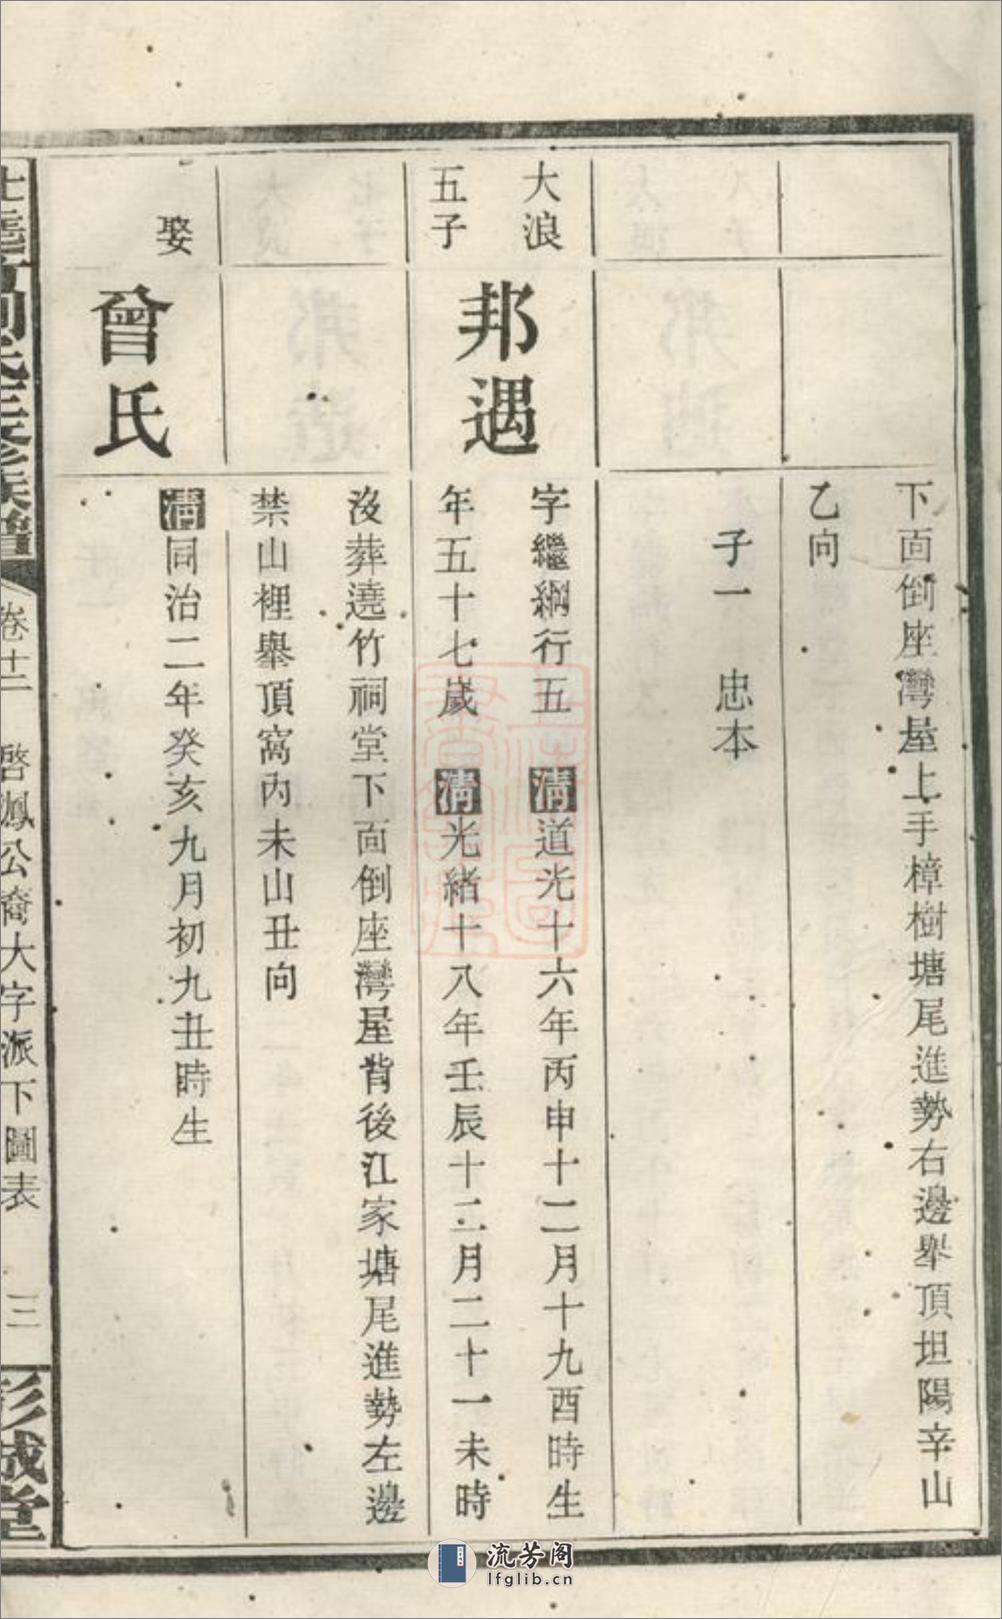 下面倒座灣屋上手樟樹塘尾進勢右邊舉頂坦陽辛山
乙向
子一 忠本
大浪
五子
邦遇
字繼綱行五 清道光十六年丙申十二月十九酉時生
年五十七歲 清光緒十八年壬辰十二月二十一未時
沒葬遶竹祠堂下面倒座灣屋背後江家塘尾進勢左邊
禁山裡舉頂窩內未山丑向
娶
曾氏
清同治二年癸亥九月初九丑時生
卷十二 啓鳳公裔大字派下圖表 三
彭城堂
流芳阁
lfglib.cn